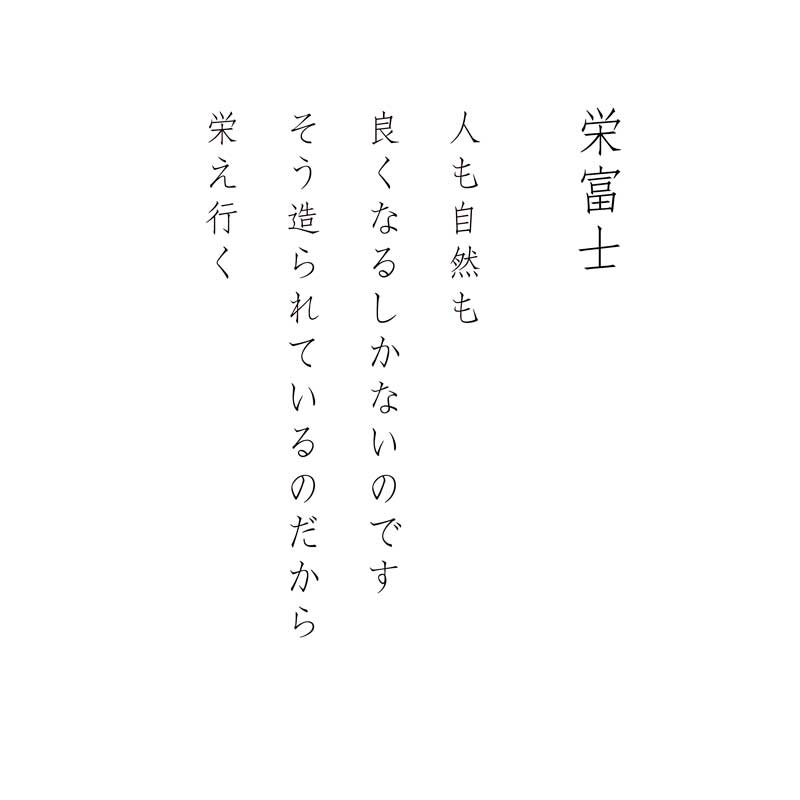 栄富士
人も自然も
良くなるしかないのです
そう造られているのだから
栄え行く